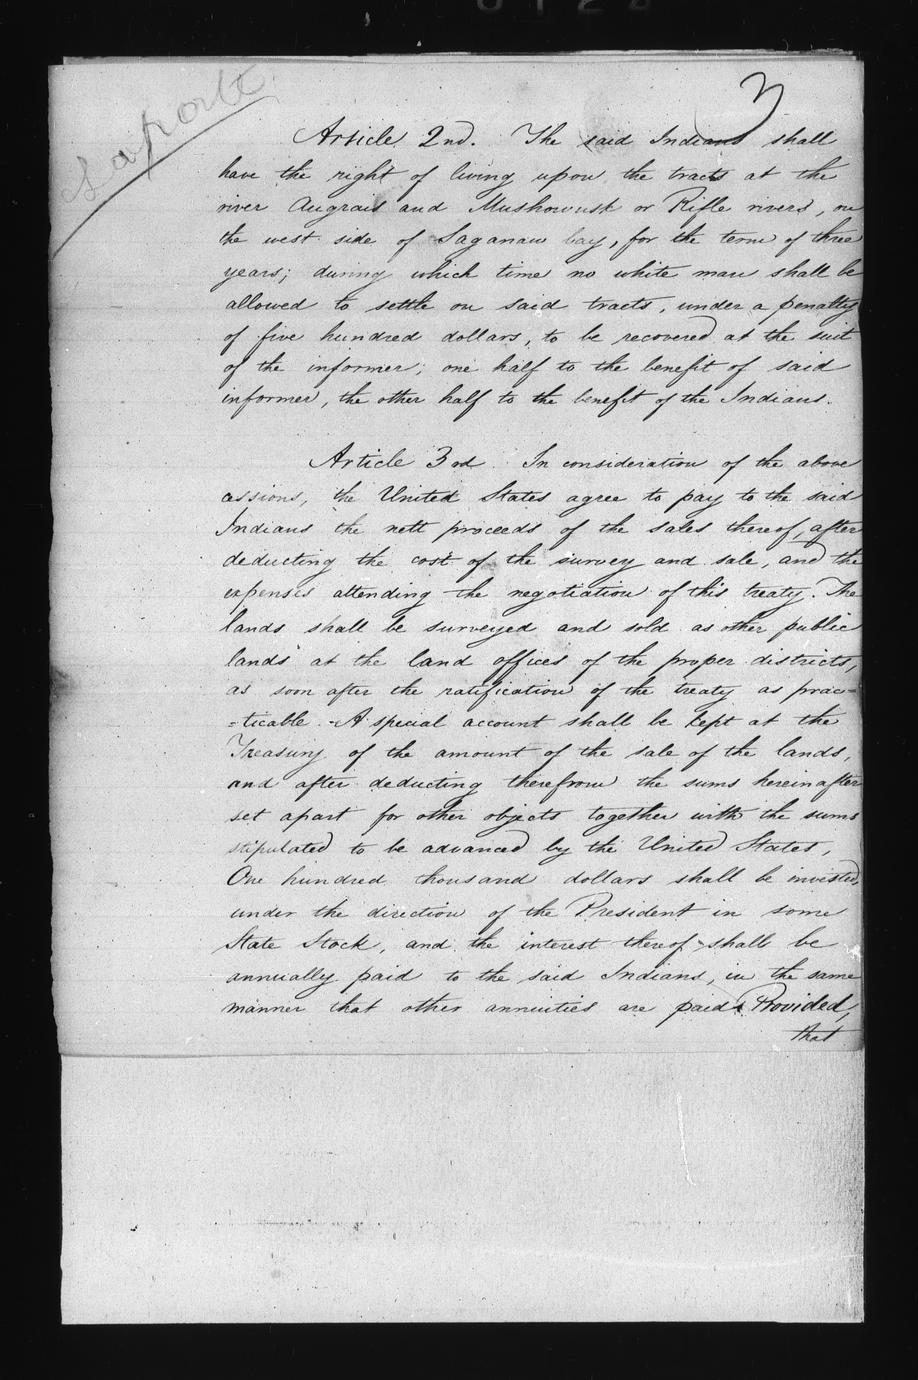 Laporte
3
Article 2nd. The said Indians shall
have the right of living upon the tracts at the
river Augrais and Mushowusk or Rifle rivers, on
the west side of Saganaw bay, for the term of three
years; during which time no white man shall be
allowed to settle on said tracts, under a penalty
of five hundred dollars, to be recovered at the suit
of the informer; one half to the benefit of said
informer, the other half to the benefit of the Indians.
Article 3rd. In consideration of the above
cessions, the United States agree to pay to the said
Indians the nett proceeds of the sales thereof, after
deducting the cost of the survey and sale, and the
expenses attending the negotiation of this treaty. The
lands shall be surveyed and sold as other public
lands at the land offices of the proper districts,
as soon after the ratification of the treaty as prac=
=ticable. A special account shall be kept at the
Treasury of the amount of the sale of the lands,
and after deducting therefrom the sums hereinafter
set apart for other objects together with the sums
stipulated to be advanced by the United States,
One hundred thousand dollars shall be invested,
under the direction of the President in some
State Stock, and the interest thereof shall be
annually paid to the said Indians, in the same
manner that other annuities are paid: Provided,
that